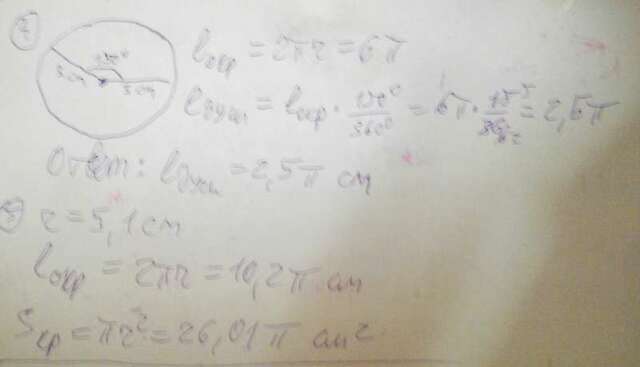 ② 150° 3 см 3 см
lокр = 2πr = 6π
lдуги = lокр · 150°/360° = 6π · 15/36 = 2,5π
Ответ: lдуги = 2,5π см
r = 5,1 см
lокр = 2πr = 10,2π см
Sкр = πr² = 26,01π см²